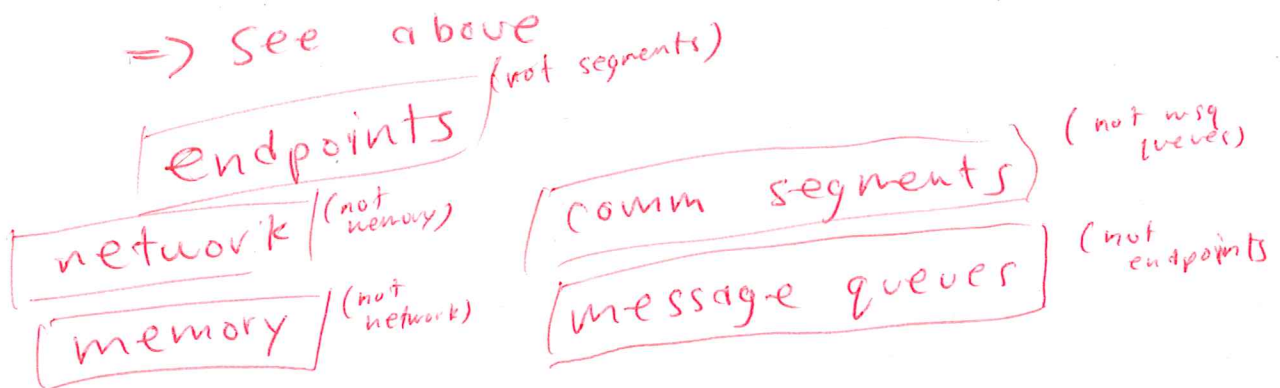 => See above
endpoints (not segments)
network (not memory)
memory (not network)
comm segments (not msg queues)
message queues (not endpoints